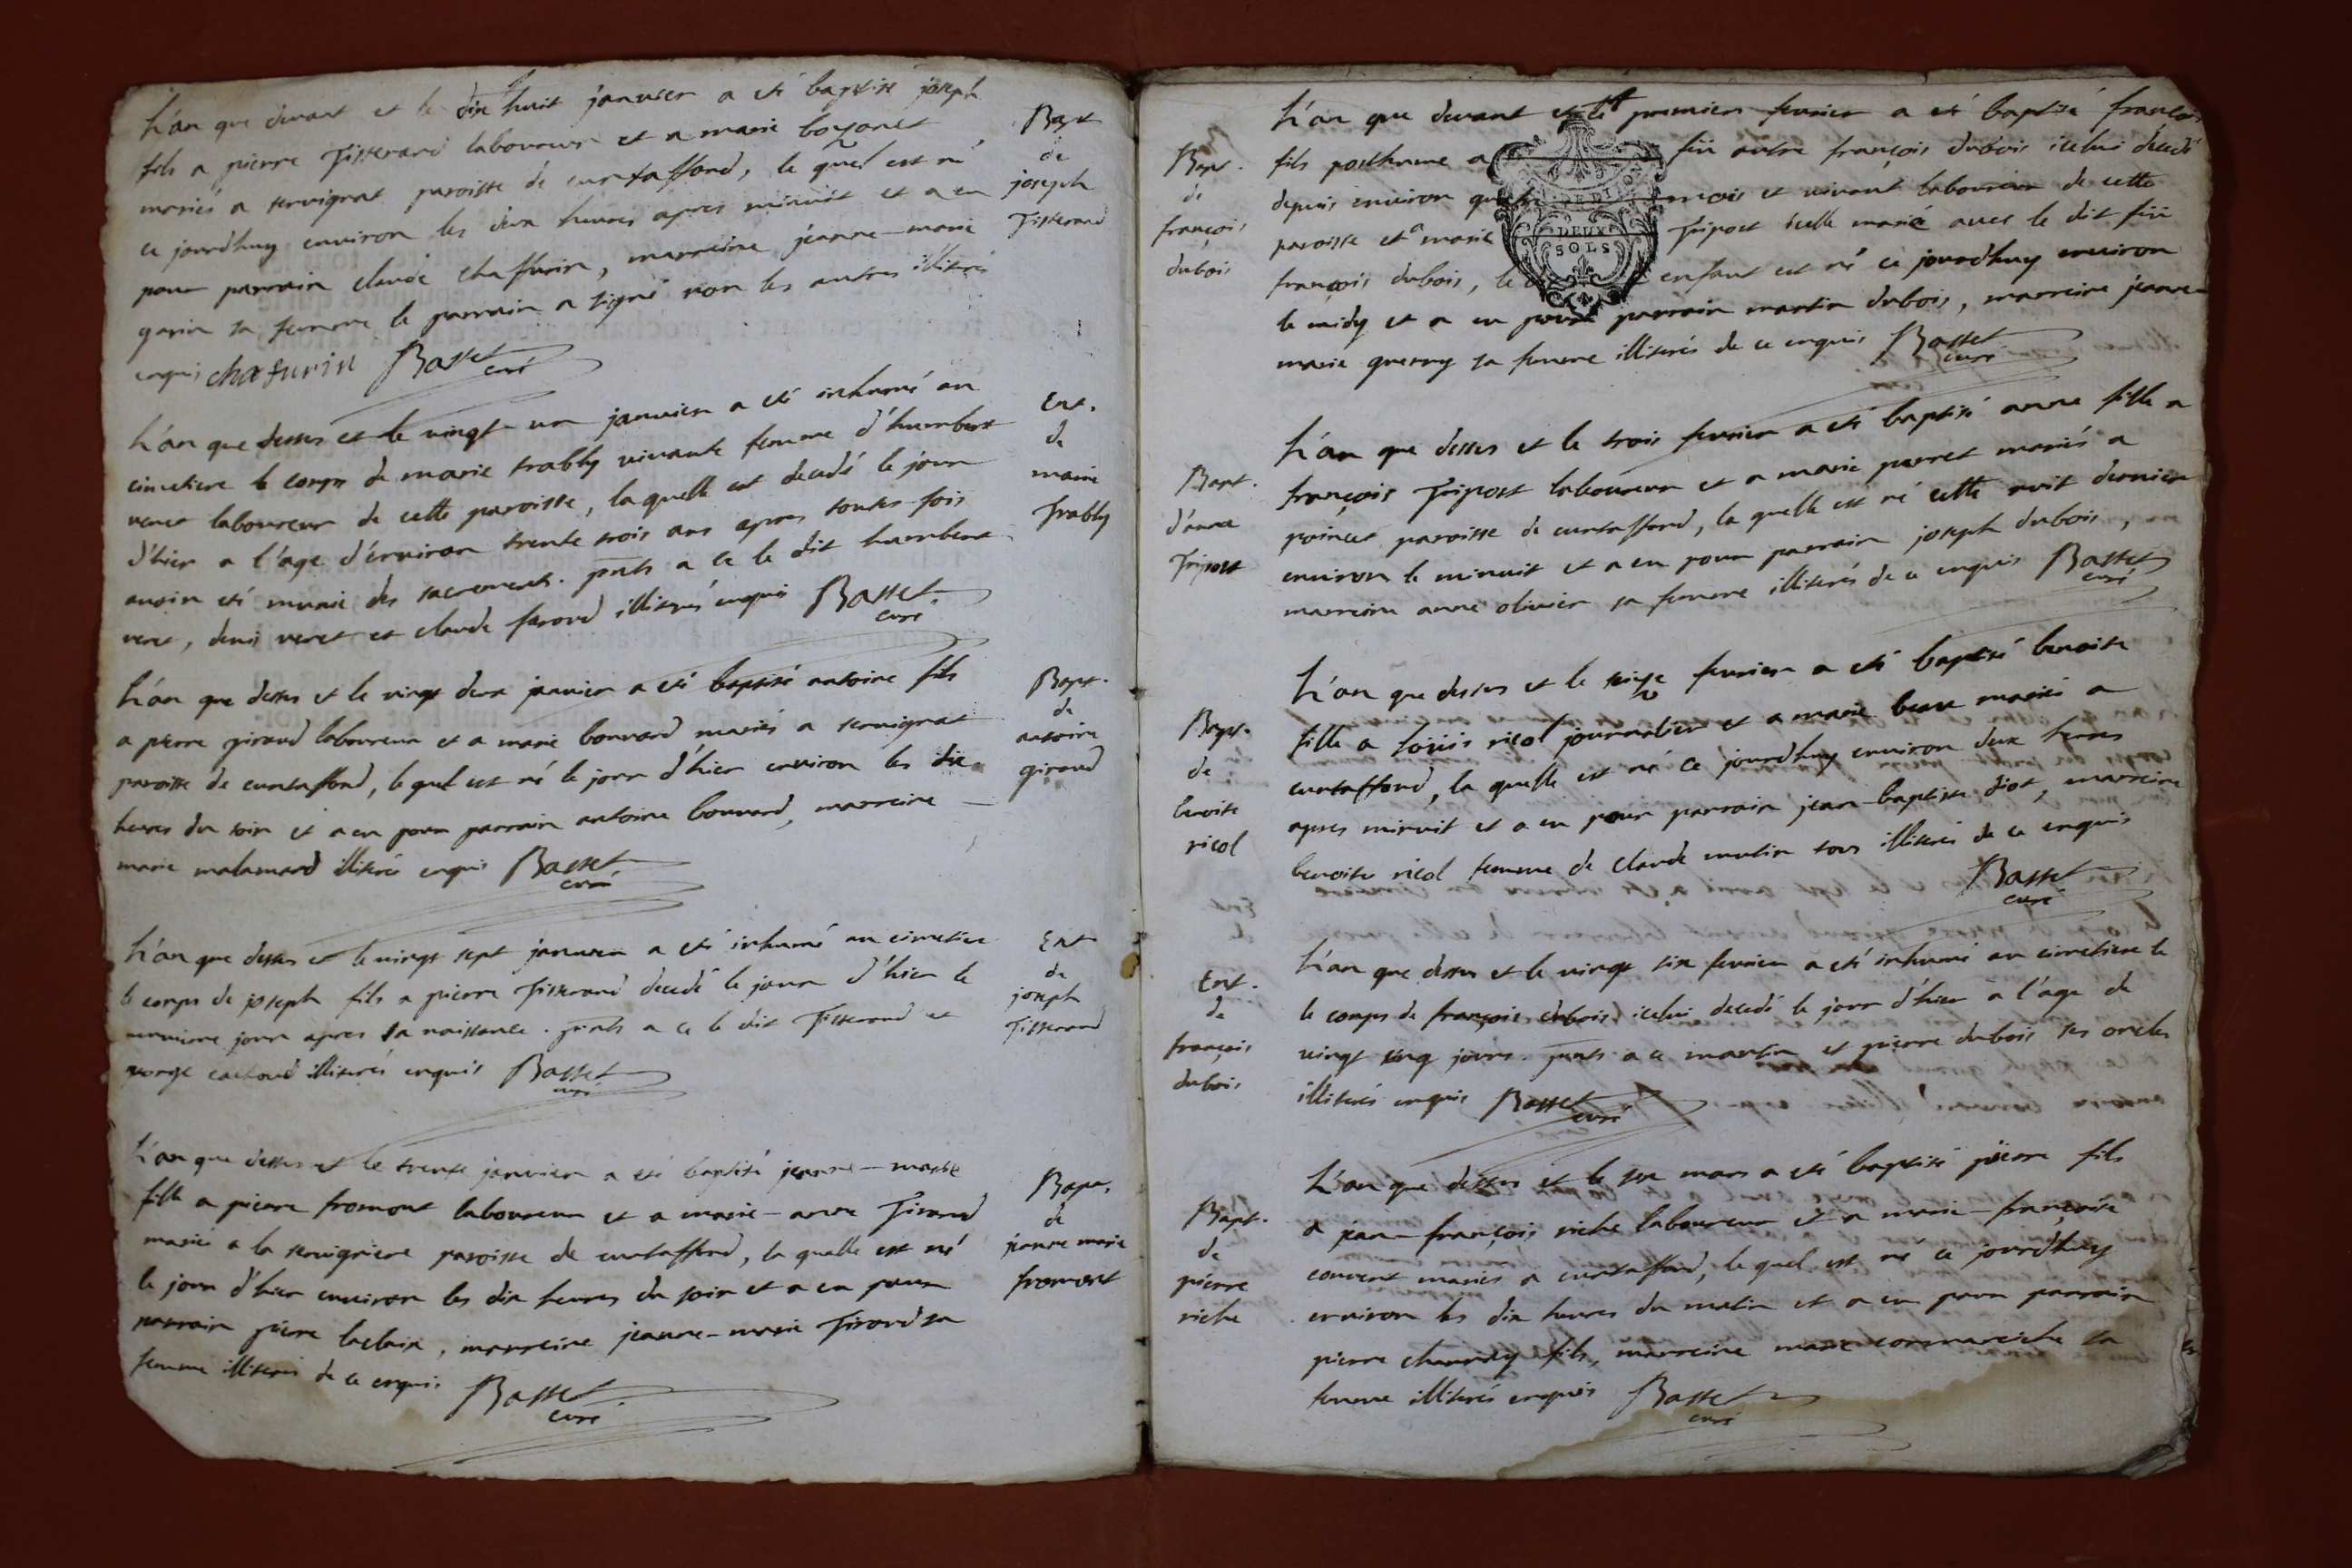 L'an que devant et le dix huit janvier a été baptisé joseph
fils a pierre Tisserand laboureur et a marie bozonet
mariés a servignat paroisse de curtaffond, le quel est né
ce jourdhuy environ les deux heures apres minuit et a eu
pour parrain claude chaffurin, marreine jeanne-marie
garin sa femme le parrain a signé non les autres illiterés
enquis chafurin Basset curé
Bapt
de
joseph
Tisserand
L'an que dessus et le vingt-un janvier a été inhumé au
cimetiere le corps de marie trably vivante femme d'humbert
veret laboureur de cette paroisse, la quelle est decedé le jour
d'hier a l'age d'environ trente trois ans apres toutes fois
avoir été munie des sacrements. pnts a ce le dit humbert
veret, denis veret et claude farond illiterés enquis Basset
curé
Ent.
de
marie
Trably
L'an que dessus et le vingt deux janvier a été baptisé antoine fils
a pierre giraud laboureur et a marie bouvard mariés a servignat
paroisse de curtaffond, le quel est né le jour d'hier environ les dix
heures du soir et a eu pour parrain antoine bouvard, marreine
marie malamard illiterés enquis Basset
curé
Bapt.
de
antoine
giraud
L'an que dessus et le vingt sept janvier a été inhumé au cimetiere
le corps de joseph fils a pierre Tisserand decedé le jour d'hier le
neuvieme jour apres sa naissance. pnts a ce le dit Tisserand et
illiterés enquis Basset
curé
Ent
de
joseph
Tisserand
L'an que dessus et le trente janvier a été baptisé jeanne-marie
fille a pierre fromont laboureur et a marie-anne Tirand
mariés a la servigniere paroisse de curtaffond, la quelle est né
le jour d'hier environ les dix heures du soir et a eu pour
parrain pierre laclaix, marreine jeanne-marie Tirand sa
femme illiterés de ce enquis Basset
curé
Bapt.
de
jeanne marie
fromont
L'an que devant et le premier fevrier a été baptisé françois
fils posthume a feü autre françois dubois icelui décedé
depuis environ mois et vivant laboureur de cette
paroisse et a marie Tripost icelle marié avec le dit feü
françois dubois, le enfant est né ce jourdhuy environ
le midy et a eu pour parrain martin dubois, marreine jeanne
marie guerry sa femme illiterés de ce enquis Basset
curé
DEUX
SOLS
Bapt.
de
françois
dubois
L'an que dessus et le trois fevrier a été baptisé anne fille a
françois Tripost laboureur et a marie perret mariés a
poincet paroisse de curtaffond, la quelle est né cette nuit derniere
environ le minuit et a eu pour parrain joseph dubois,
marreine anne olivier sa femme illiterés de ce enquis Basset
curé
Bapt.
d'anne
Tripost
L'an que dessus et le seize fevrier a été baptisé benoite
fille a loüis nicol journalier et a marie beau mariés a
curtaffond, la quelle est né ce jourdhuy environ deux heures
apres minuit et a eu pour parrain jean-baptiste diot, marreine
benoite nicol femme de claude mutin tous illiterés de ce enquis
Basset
curé
Bapt.
de
benoite
nicol
L'an que dessus et le vingt six fevrier a été inhumé au cimetiere le
le corps de françois dubois icelui decedé le jour d'hier a l'age de
vingt cinq jours. pnts a ce martin et pierre dubois ses oncles
illiterés enquis Basset
curé
Ent.
de
françois
dubois
L'an que dessus et le six mars a été baptisé pierre fils
a jean-françois riche laboureur et a marie-françoise
convert mariés a curtaffond, le quel est né ce jourdhuy
environ les dix heures du matin et a eu pour parrain
pierre fils, marreine marie sa
femme illiterés enquis Basset
curé
Bapt.
de
pierre
riche